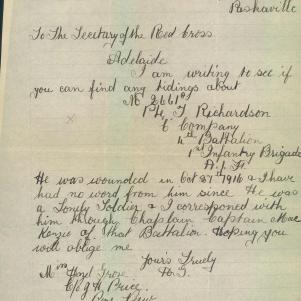 Peshaville
To The Secretary of the Red Cross
Adelaide
I am writing to see if
you can find any tidings about
No 2661
Pte T Richardson
C Company
4th Battalion
1st Infantry Brigade
A.I.F.
He was wounded in Oct 27th 1916 & I have
had no word from him since He was
a Lonely Soldier & I corresponed with
him through Chaplain Captain Mac
Kenzie of that Battalion. Hoping you
will oblige me
Yours Truely
H. G.
Hazel Grose
C/o J H Price